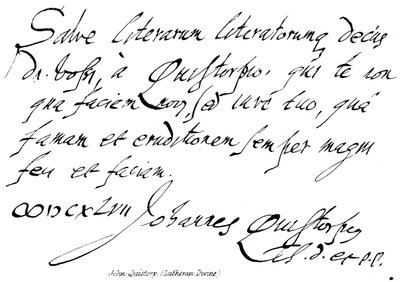 Salve literarum literatorumq decus
Dn. Vossi, à Quistorpio, qui te non
qua faciem novi, sed iure tuo, quà
famam et eruditionem semper magni
feci et faciam.
Johannes Quistorpius
D. et P.P.
John Quistorp. (Lutheran Divine.)